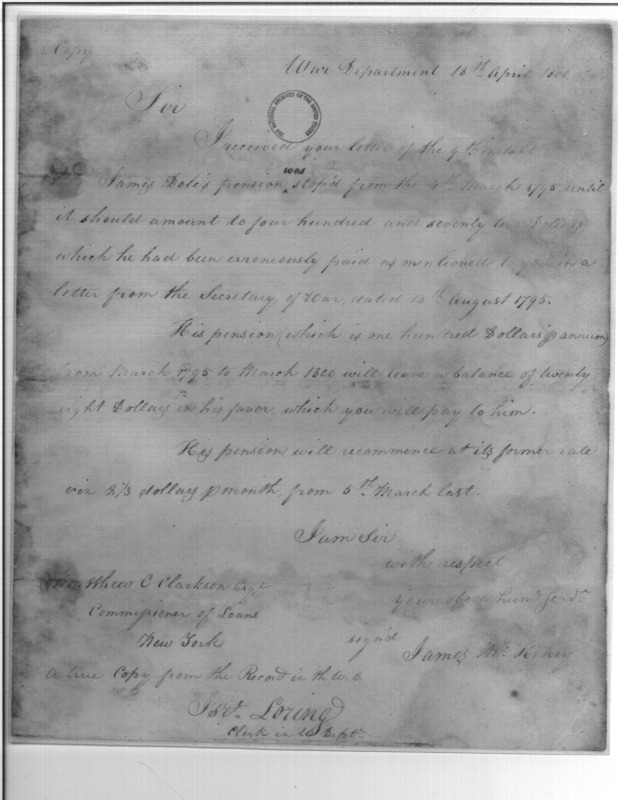 Copy
War Department 15th April 1800
Sir
THE NATIONAL ARCHIVES OF THE UNITED STATES
I received your letter of the 9th instant
James Dole's pension was stop'd from the 4th March 1795 until
it should amount to four hundred and seventy two Dollars
which he had been erroneously paid as mentioned to you in a
letter from the Secretary of War, dated 12th August 1795.
His pension (which is one hundred Dollars p annum)
from March 1795 to March 1800 will leave a balance of twenty
eight Dollars in his favor which you will pay to him.
His pension will recommence at its former rate
viz 8 1/3 dollars p month, from 5th March last.
I am Sir
with respect
your obedt huml Servt
Matthew C Clarkson Esqr
Commissioner of Loans
New York
sign'd James McHenry
a true Copy from the Record in the W. D
Isrl Loring
Clerk in W Dept